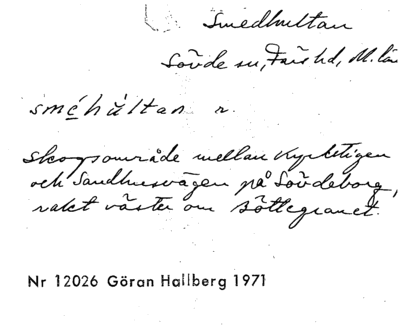 Smedhultan
Sövde sn, Färs hd, M. län
sméhùltan n.
skogsområde mellan Kyrkstigen
och Sandhusvägen på Sövdeborg,
rakt väster om Böttegranet.
Nr 12026 Göran Hallberg 1971